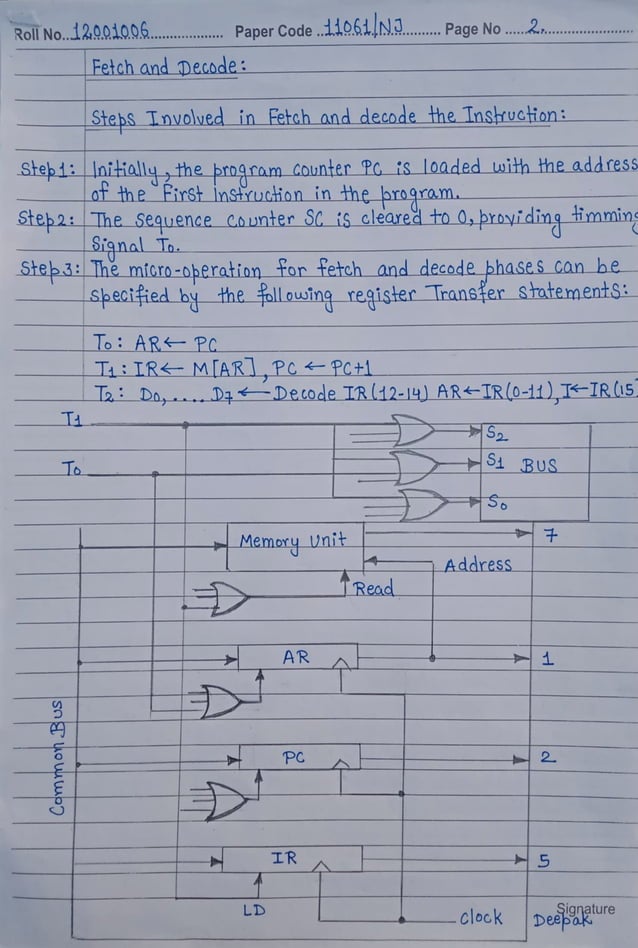 Roll No..12001006.................... Paper Code ..11061/NJ.......... Page No .....2.........................
Fetch and Decode:
Steps Involved in Fetch and decode the Instruction:
Step1: Initially, the program counter PC is loaded with the address
of the First Instruction in the program.
Step2: The sequence counter SC is cleared to 0, providing timming
Signal T0.
Step3: The micro-operation for fetch and decode phases can be
specified by the following register Transfer statements:
T0: AR← PC
T1: IR← M[AR], PC ← PC+1
T2: D0, .... D7 ← Decode IR(12-14) AR←IR(0-11), I←IR(15)
T1
S2
T0
S1 BUS
S0
Memory Unit
7
Address
Read
AR
1
Common Bus
PC
2
IR
5
LD
clock
Signature
Deepak